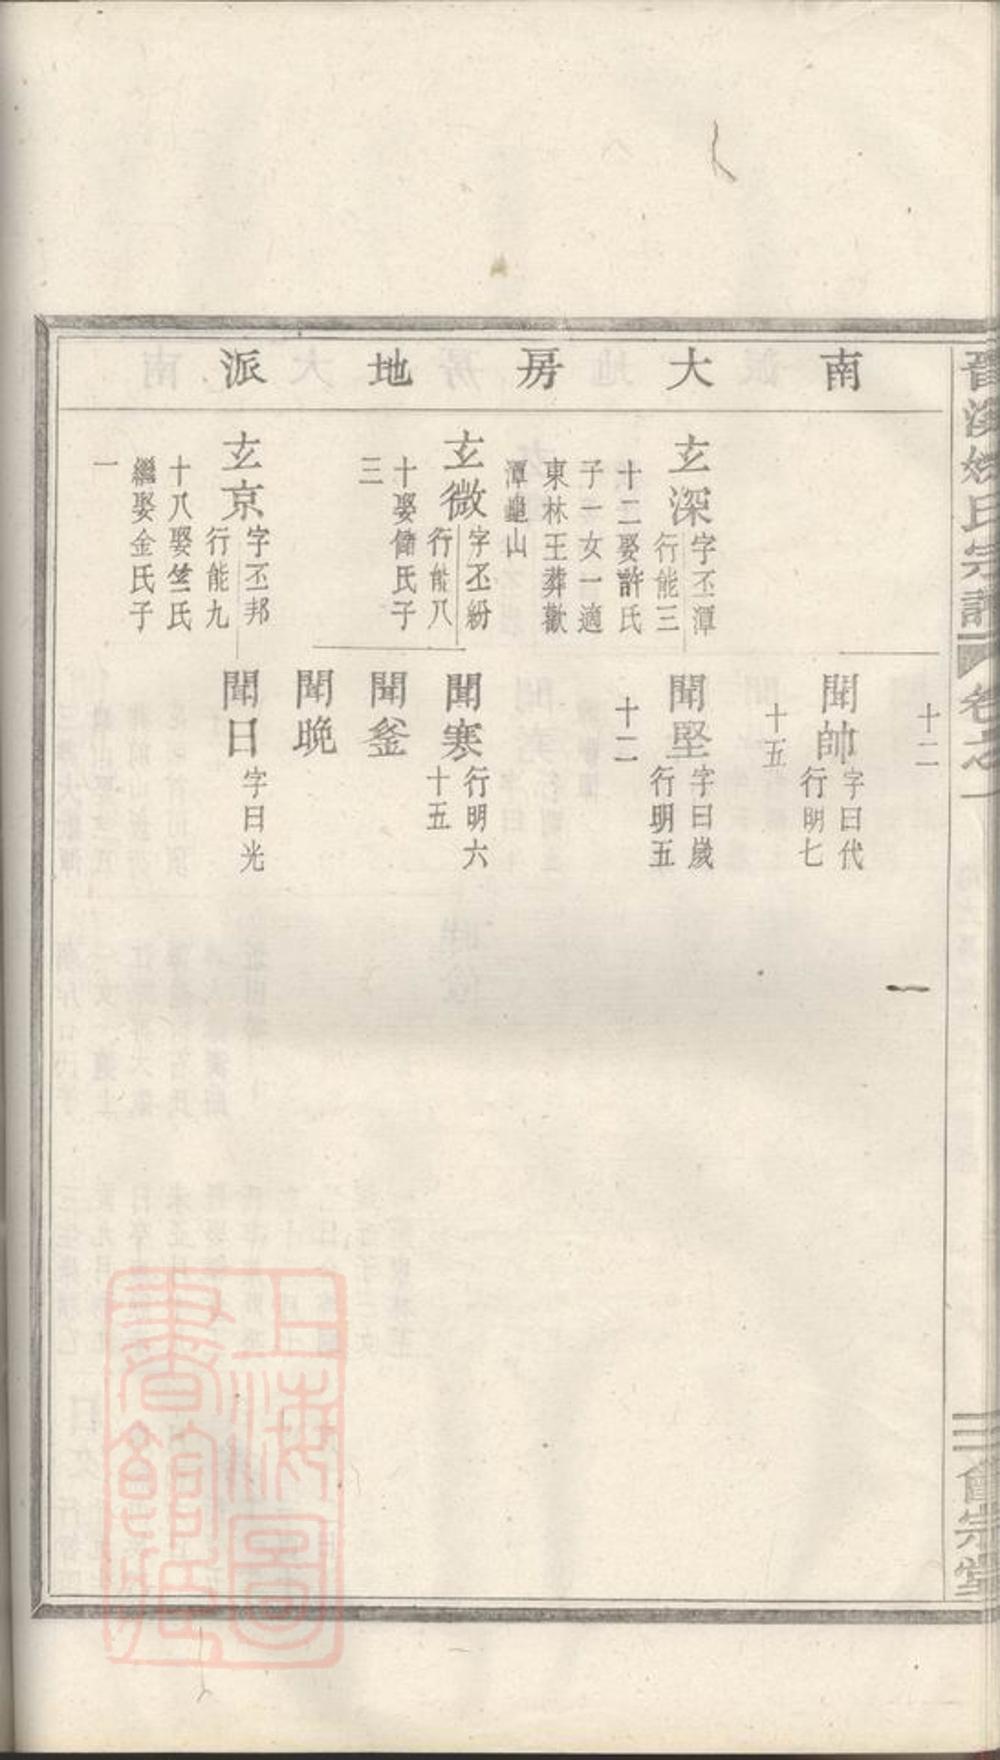 南大房地派
十二
聞帥
字曰代
行明七
十五
玄深
字丕潭
行能三
十二娶許氏
子一女一適
東林王葬歡
潭
山
聞堅
字曰歲
行明五
十二
玄微
字丕紛
行能八
十娶
氏子
三
聞寒
行明六
十五
聞釜
聞晚
玄京
字丕邦
行能九
十八娶竺氏
繼娶金氏子
一
聞日
字曰光
氏宗譜
卷之一
會宗堂
上海圖書館藏